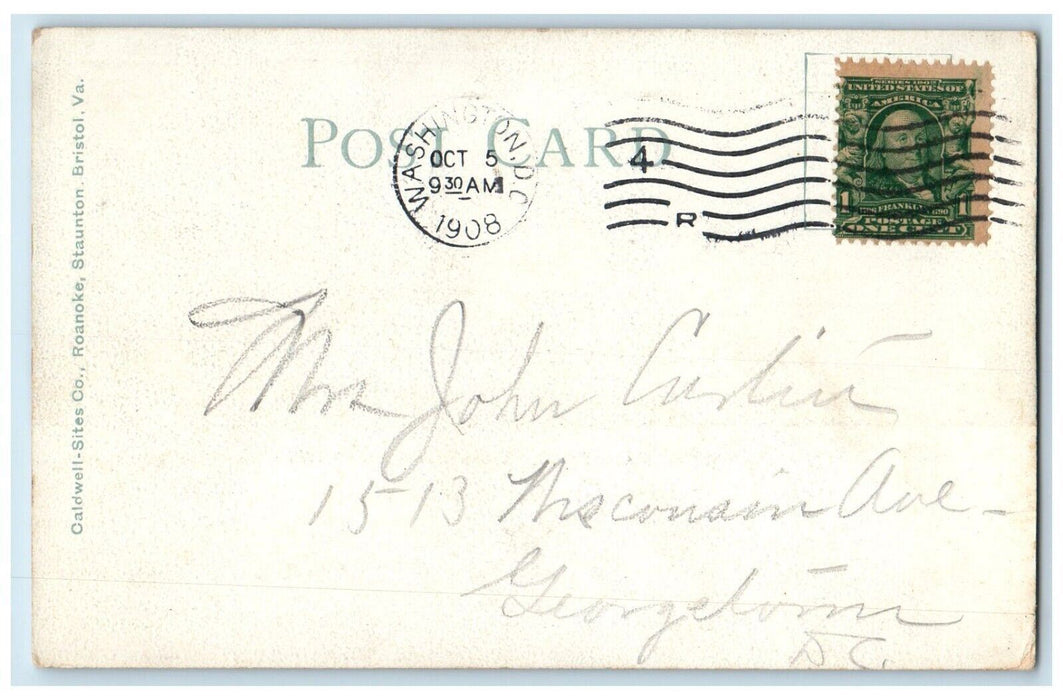 Caldwell-Sites Co., Roanoke, Staunton. Bristol. Va.
POST CARD
WASHINGTON, D.C.
OCT 5
9 30 AM
1908
4
R
SERIES 1902
UNITED STATES OF
AMERICA
FRANKLIN
1 1
POSTAGE
ONE CENT
Mrs John
1513 Wisconsin Ave-
Georgetown
D C.